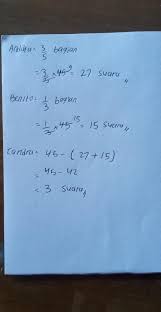 Andika = 3/5 bagian
= 3/5 × 45 9 = 27 suara
Benito = 1/3 bagian
= 1/3 × 45 15 = 15 suara
Candra = 45 - (27 + 15)
= 45 - 42
= 3 suara